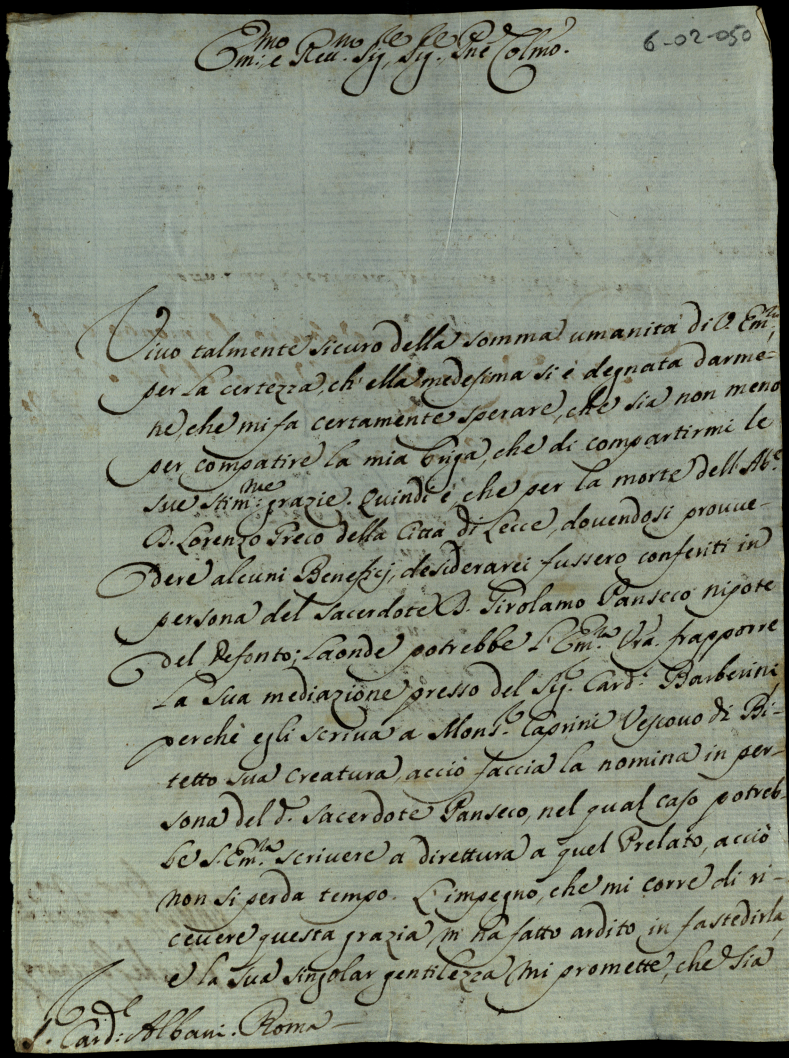 6-02-050
Em:mo e Reu:mo Sig.re Sig.re Pne Colmo.
Viuo talmente sicuro della somma umanità di V. Em:za,
per la certezza, ch'ella medesima si è degnata darme-
ne, che mi fa certamente sperare, che sia non meno
per compatire la mia briga, che di compartirmi le
sue stim:me grazie. Quindi è che per la morte dell'Ab.e
D. Lorenzo Greco della Città di Lecce, douendosi prouue-
dere alcuni Benefizj, desiderarei fussero conferiti in
persona del Sacerdote D. Girolamo Panseco nipote
del Defonto; Laonde potrebbe l'Em:za Vra. frapporre
la sua mediazione presso del Sig.r Card:l Barberini,
perchè egli scriva a Mons.r Caprini Vescouo di Bi-
tetto sua creatura, acciò faccia la nomina in per-
sona del d.o Sacerdote Panseco, nel qual caso potreb-
be S. Em:za scriuere a direttura a quel Prelato, acciò
non si perda tempo. L'impegno, che mi corre di ri-
ceuere questa grazia m'ha fatto ardito in fastedirla,
e la sua singolar gentilezza mi promette, che sia
S. Card:le Albani. Roma